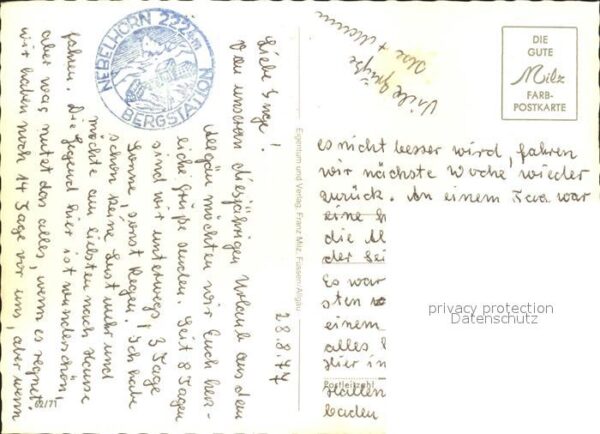 28.8.77
Liebe Inge!
Von unserem diesjährigen Urlaub aus dem
Allgäu möchten wir Euch herz-
liche Grüße senden. Seit 8 Tagen
sind wir unterwegs, 3 Tage
Sonne, sonst Regen. Ich habe
schon keine Lust mehr und
möchte am liebsten nach Hause
fahren. Die Gegend hier ist wunderschön,
aber was nutzt das alles, wenn es regnet.
wir haben noch 14 Tage vor uns, aber wenn
62/71
NEBELHORN 2224m
BERGSTATION
Eigentum und Verlag, Franz Milz, Füssen/Allgäu
Viele Grüße
DIE
GUTE
Milz
FARB-
POSTKARTE
es nicht besser wird, fahren
wir nächste Woche wieder
zurück. An einem Tag war
eine
die
der
Es war
sten
einem
alles
Hier in
Postleitzahl
Hallen
baden
privacy protection
Datenschutz